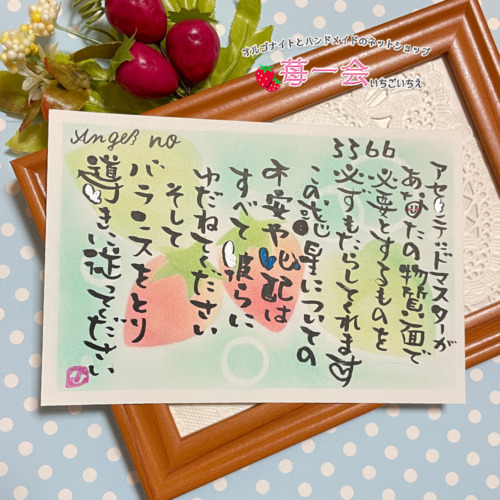 オルゴナイトとハンドメイドのネットショップ
苺一会
いちごいちえ
Angel no
3366
アセンテッドマスターが
あなたの物質面で
必要とするものを
必ずもたらしてくれます
この惑星についての
不安や心配は
すべて彼らに
ゆだねてください
そして
バランスをとり
導きに従ってください